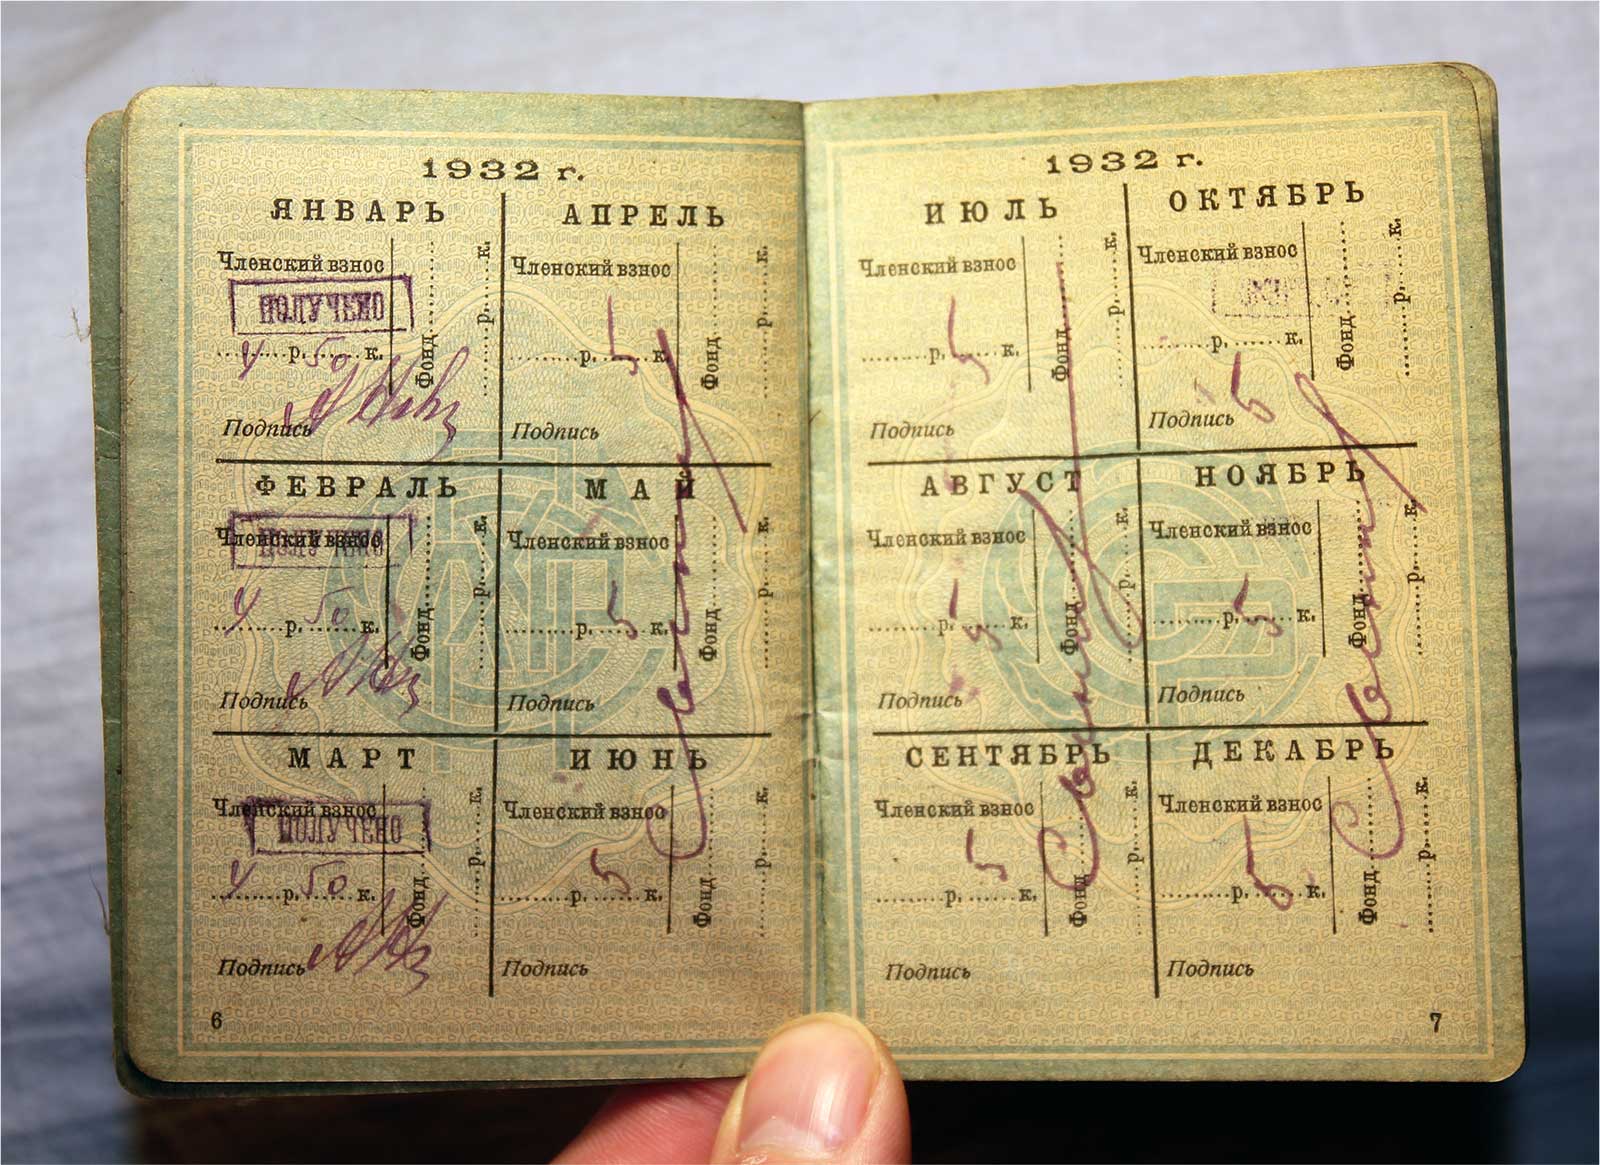 1932 г.
ЯНВАРЬ
Членский взнос
ПОЛУЧЕНО
4 р. 50 к.
Фонд р. к.
Подпись
АПРЕЛЬ
Членский взнос
р. 5 к.
Фонд р. к.
Подпись
ФЕВРАЛЬ
Членский взнос
ПОЛУЧЕНО
4 р. 50 к.
Фонд р. к.
Подпись
МАЙ
Членский взнос
р. 5 к.
Фонд р. к.
Подпись
МАРТ
Членский взнос
ПОЛУЧЕНО
4 р. 50 к.
Фонд р. к.
Подпись
ИЮНЬ
Членский взнос
р. 5 к.
Фонд р. к.
Подпись
6
1932 г.
ИЮЛЬ
Членский взнос
р. 5 к.
Фонд р. к.
Подпись
ОКТЯБРЬ
Членский взнос
р. к.
Фонд р. к.
5
Подпись
АВГУСТ
Членский взнос
р. 5 к.
Фонд р. к.
Подпись
НОЯБРЬ
Членский взнос
р. 5 к.
Фонд р. к.
Подпись
СЕНТЯБРЬ
Членский взнос
р. 5 к.
Фонд р. к.
Подпись
ДЕКАБРЬ
Членский взнос
р. 5 к.
Фонд р. к.
Подпись
7